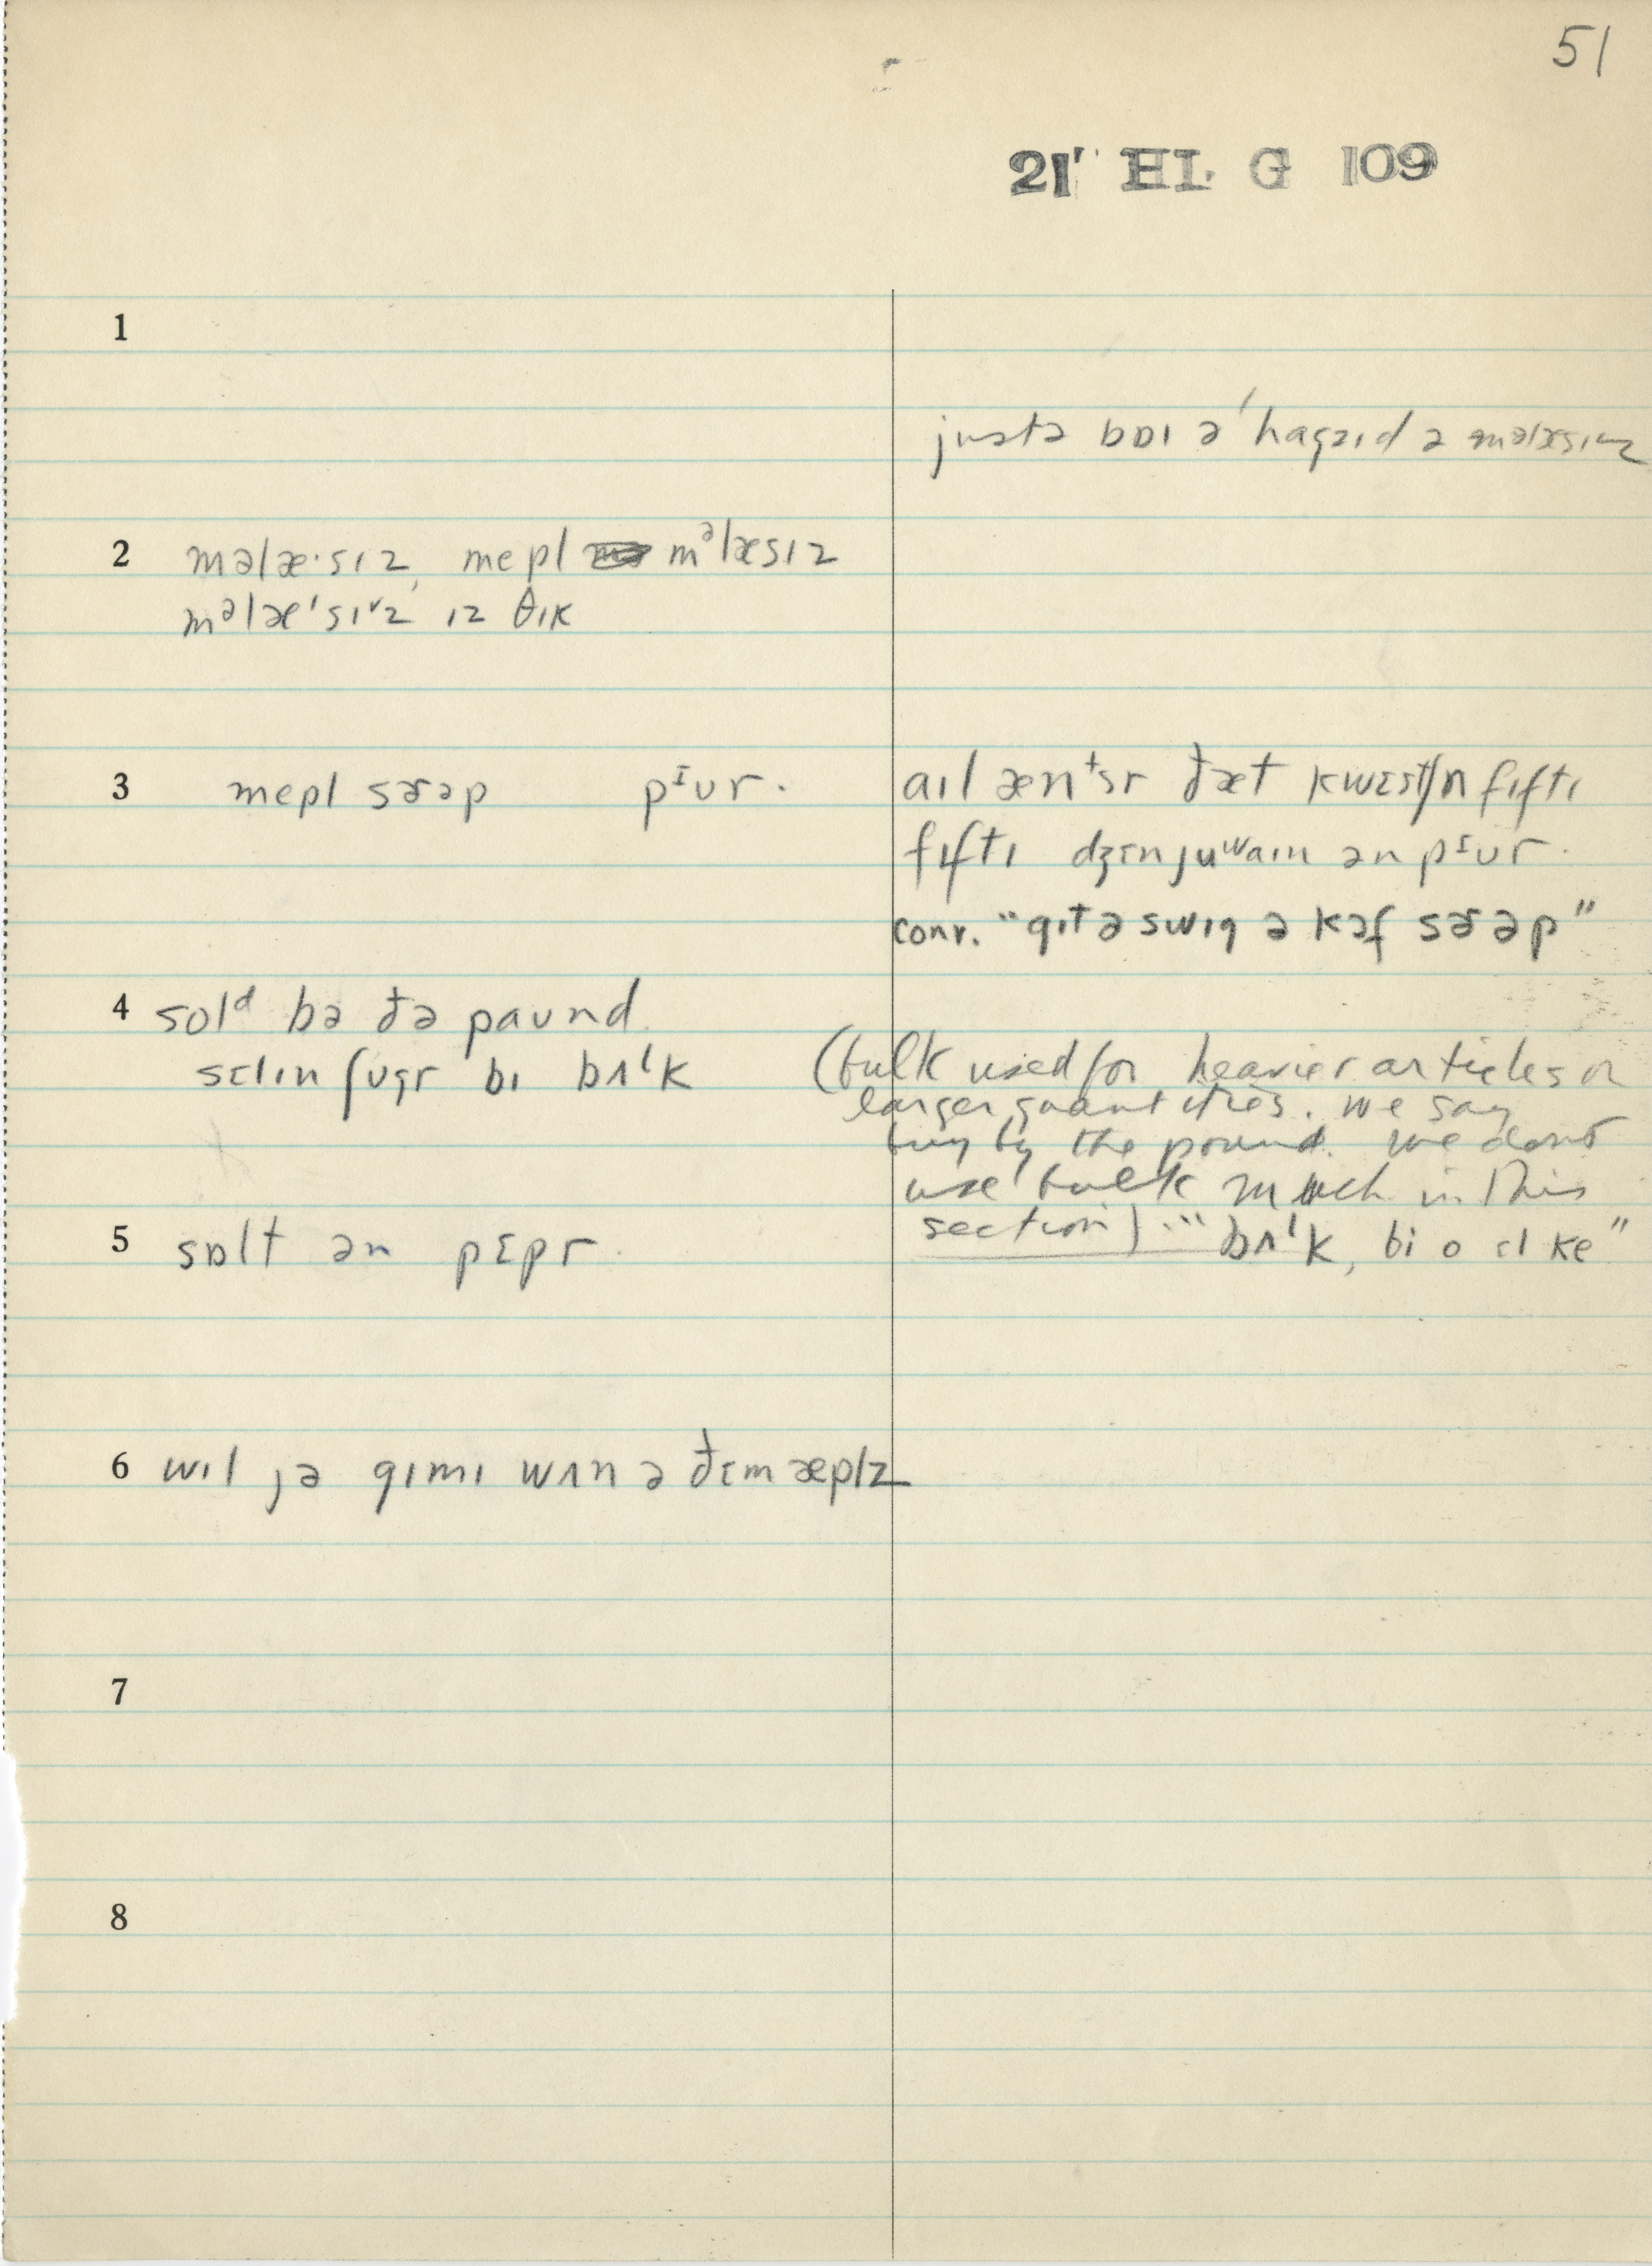 51
21' HL G 109
1
justə bɒɪ ə ʹhaɡzɪd ə məlæsɪz
2 məlæ·sɪz, mepl mᵊlæsɪz
mᵊlæˈsɪˇz ɪz θɪk
3 mepl sɚəp pᶦʊr. aɪl ænᵗsr ðæt kwɛstʃn fɪftɪ
fɪftɪ dʒɛnjuʷaɪn ən pᶦʊr.
conv. "ɡɪt ə swɪɡ ə kɔf sɚəp"
4 solᵈ bə ðə paʊnd.
sɛlɪn ʃʊɡr bɪ bʌˡk (bulk used for heavier articles or
larger quantities. We say
buy by the pound. We don't
use bulk much in this
section) "bʌˡk, bi o ɛl ke"
5 sɒlt ən pɛpr.
6 wɪl jə ɡɪmɪ wʌn ə ðɛm æplz
7
8